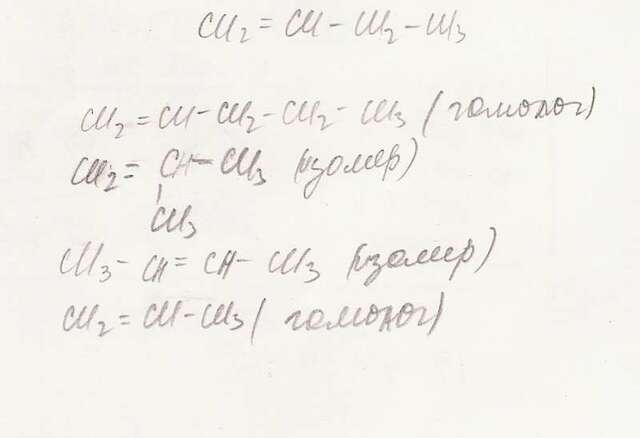 CH2=CH-CH2-CH3
CH2=CH-CH2-CH2-CH3 (гомолог)
CH2=CH-CH3 (изомер)
CH3
CH3-CH=CH-CH3 (изомер)
CH2=CH-CH3 (гомолог)